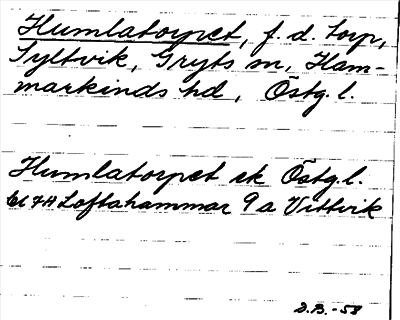 Humlatorpet, f. d. torp,
Syltvik, Gryts sn, Ham-
markinds hd, Östg. l.
Humlatorpet ek Östg. l.
bl 7H Loftahammar 9a Vittvik
D.B. -58